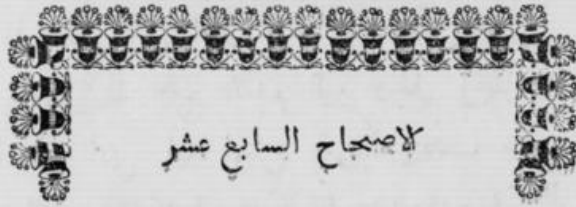 الاصحاح السابع عشر